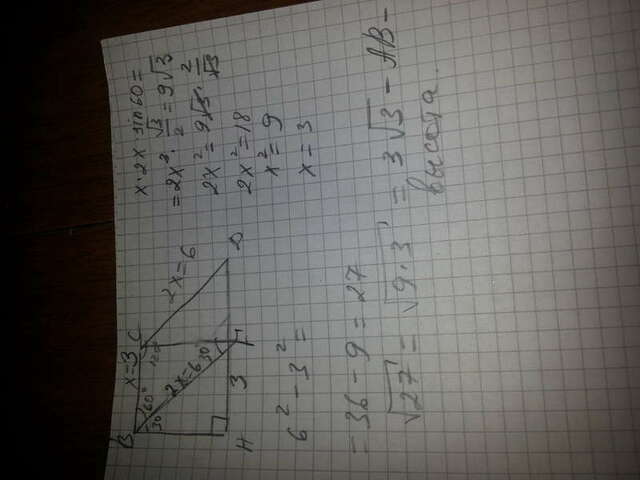 x · 2x · sin 60 =
= 2x² · √3/2 = 9√3
2x² = 9√3 · 2/√3
2x² = 18
x² = 9
x = 3
B x=3 C
30 60° 120°
2x=6
2x=6
30
H 3 D
6² - 3² =
= 36 - 9 = 27
√27 = √9·3 = 3√3 - AB -
высота.